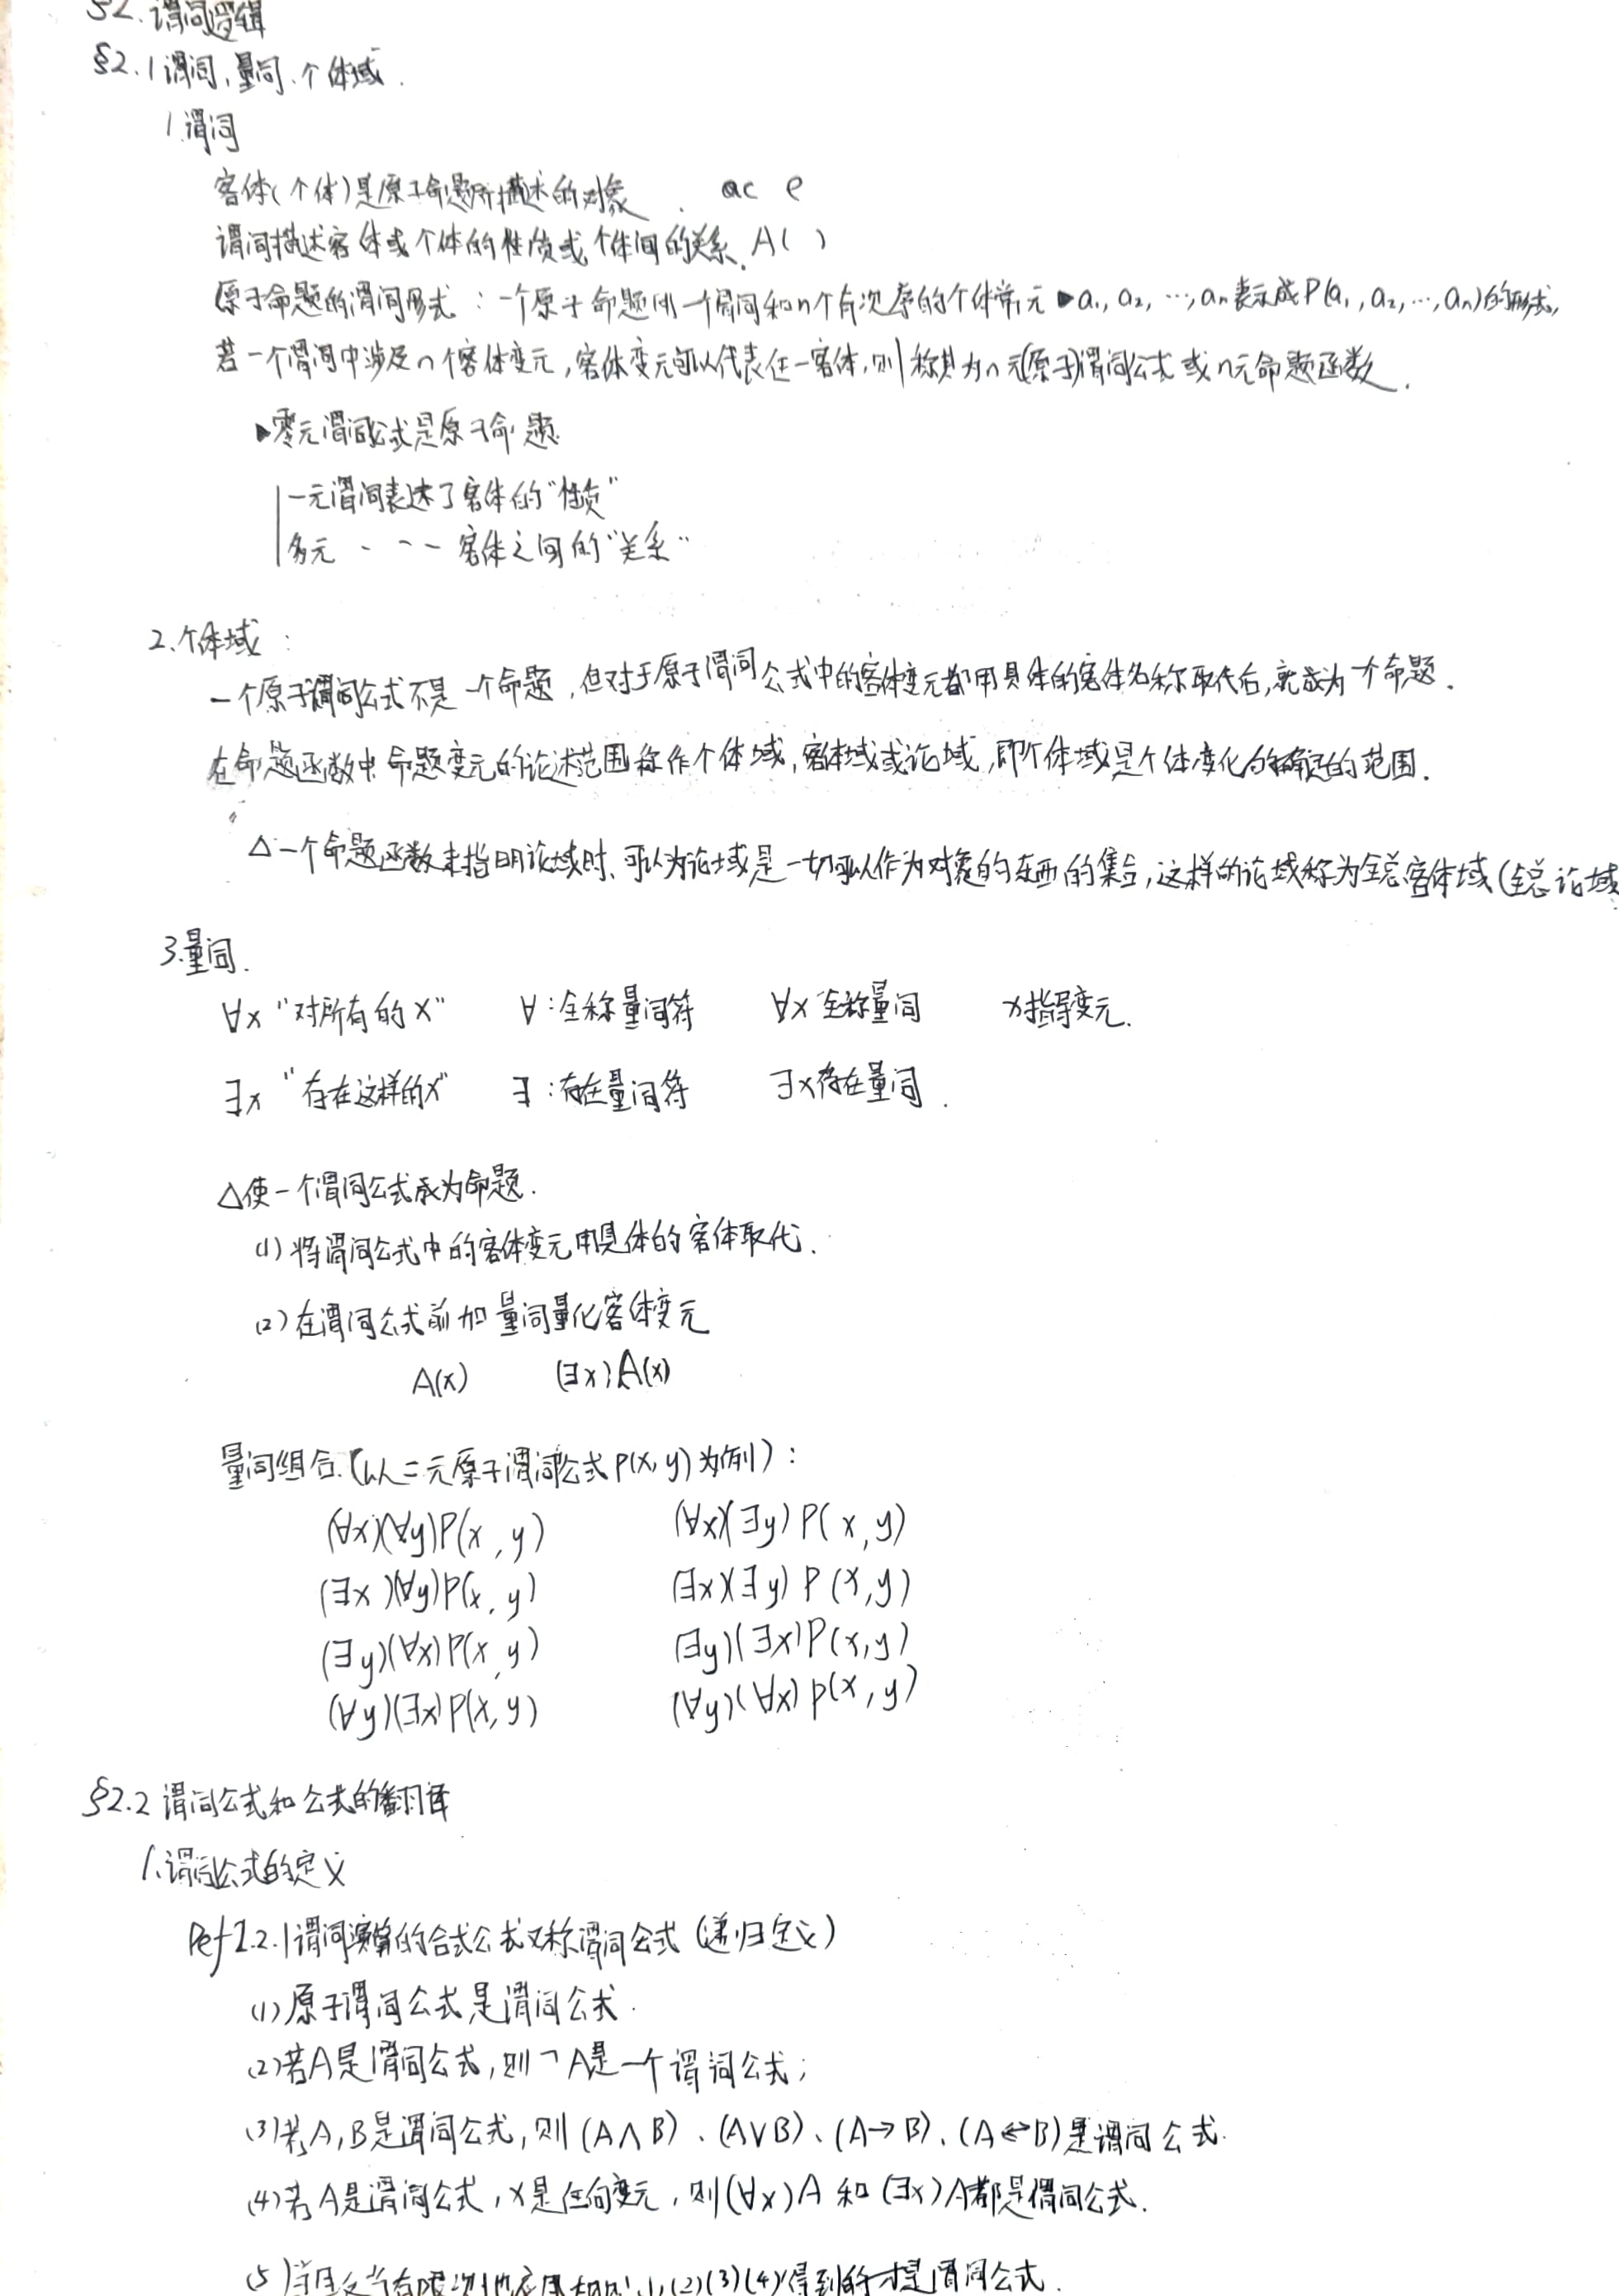 §2.谓词逻辑
§2.1谓词,量词、个体域.
1.谓词
客体(个体)是原子命题所描述的对象. ac e
谓词描述客体或个体的性质或个体间的关系. A( )
原子命题的谓词形式:一个原子命题用一个谓词和n个有次序的个体常元a₁, a₂, …, aₙ表示成P(a₁, a₂, …, aₙ)的形式,
若一个谓词中涉及n个客体变元,客体变元可以代表任一客体,则称其为n元(原子)谓词公式或n元命题函数.
▶零元谓词公式是原子命题.
一元谓词表达了客体的"性质"
多元 - - - 客体之间的"关系"
2.个体域:
一个原子谓词公式不是一个命题,但对于原子谓词公式中的客体变元都用具体的客体名称取代后,就成为一个命题.
在命题函数中命题变元的论述范围称作个体域,客体域或论域,即个体域是个体变化的确定的范围.
△一个命题函数未指明论域时、可认为论域是一切可以作为对象的东西的集合,这样的论域称为全总客体域(全总论域
3.量词.
∀x "对所有的x" ∀:全称量词符 ∀x 全称量词 x指导变元.
∃x "存在这样的x" ∃:存在量词符 ∃x存在量词.
△使一个谓词公式成为命题.
(1)将谓词公式中的客体变元用具体的客体取代.
(2)在谓词公式前加量词量化客体变元
A(x) (∃x)A(x)
量词组合.(以二元原子谓词公式P(x,y)为例):
(∀x)(∀y)P(x,y) (∀x)(∃y)P(x,y)
(∃x)(∀y)P(x,y) (∃x)(∃y)P(x,y)
(∃y)(∀x)P(x,y) (∃y)(∃x)P(x,y)
(∀y)(∃x)P(x,y) (∀y)(∀x)P(x,y)
§2.2 谓词公式和公式的翻译
1.谓词公式的定义
Def 2.2.1谓词演算的合式公式又称谓词公式(递归定义)
(1)原子谓词公式是谓词公式.
(2)若A是谓词公式,则¬A是一个谓词公式;
(3)若A,B是谓词公式,则(A∧B)、(A∨B)、(A→B)、(A↔B)是谓词公式.
(4)若A是谓词公式,x是任何变元,则(∀x)A和(∃x)A都是谓词公式.
(5)当且仅当有限次地应用规则(1)(2)(3)(4)得到的才是谓词公式.